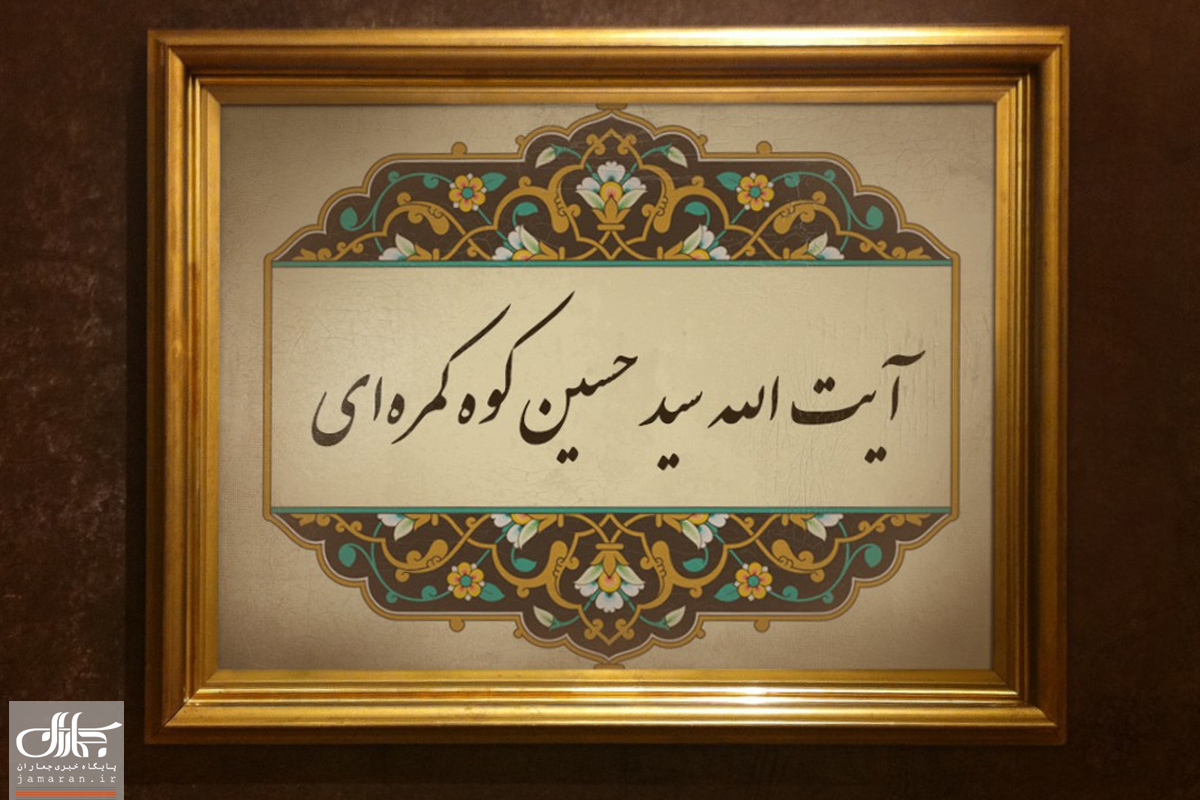 آیت الله سید حسین کوه کمره‌ای
جماران
پایگاه خبری جماران
jamaran.ir